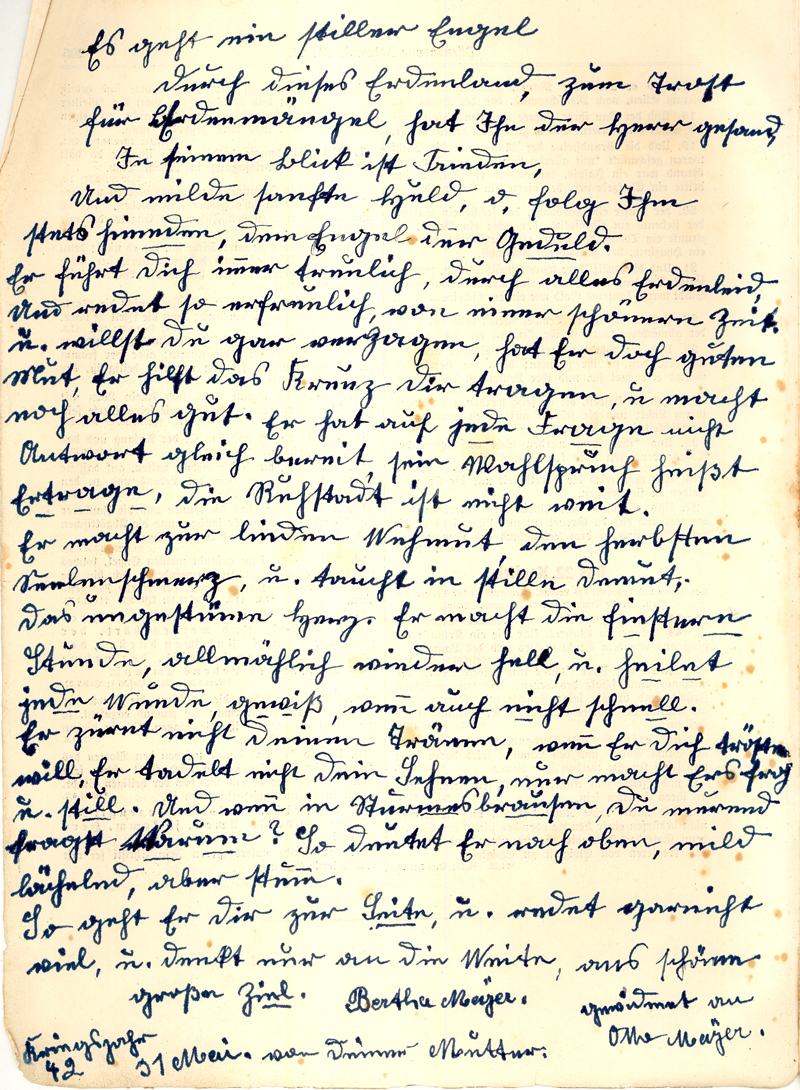 Es geht ein stiller Engel
durch dieses Erdenland, zum Trost
für Erdenmängel, hat Ihn der Herr gesand,
In seinem Blick ist Frieden,
Und milde sanfte Huld, o, folg Ihm
stets hinieden, dem Engel der Geduld.
Er führt Dich immer treulich, durch alles Erdenleid,
Und redet so erfreulich, von einer schönern Zeit.
u. willst Du gar verzagen, hat Er doch guten
Mut, Er hilft das Kreuz dir tragen, u macht
noch alles gut. Er hat auf jede Frage nicht
Antwort gleich bereit, sein Wahlspruch heißt
Ertrage, die Ruhstadt ist nicht weit.
Er macht zur linden Wehmut, den herbsten
Seelenschmerz, u. taucht in stille Demut,
das ungestüme Herz. Er macht die finstere
Stunde, allmählich wieder hell, u. heilet
jede Wunde, gewiß, wenn auch nicht schnell.
Er zürnt nicht Deinen Tränen, wenn Er Dich trösten
will, Er tadelt nicht Dein Sehnen, nur macht Ers from
u. still. Und wenn in Sturmesbrausen, Du murend
fragst Warum? So deutet Er nach oben, mild
lächelnd, aber stumm.
So geht Er Dir zur Seite, u. redet garnicht
viel, u. denkt nur an die Weite, ans schöne
große Ziel. Bertha Mayer. gewidmet an
Kriegsjahr 42 31 Mai. von Deiner Mutter. Otto Mayer.